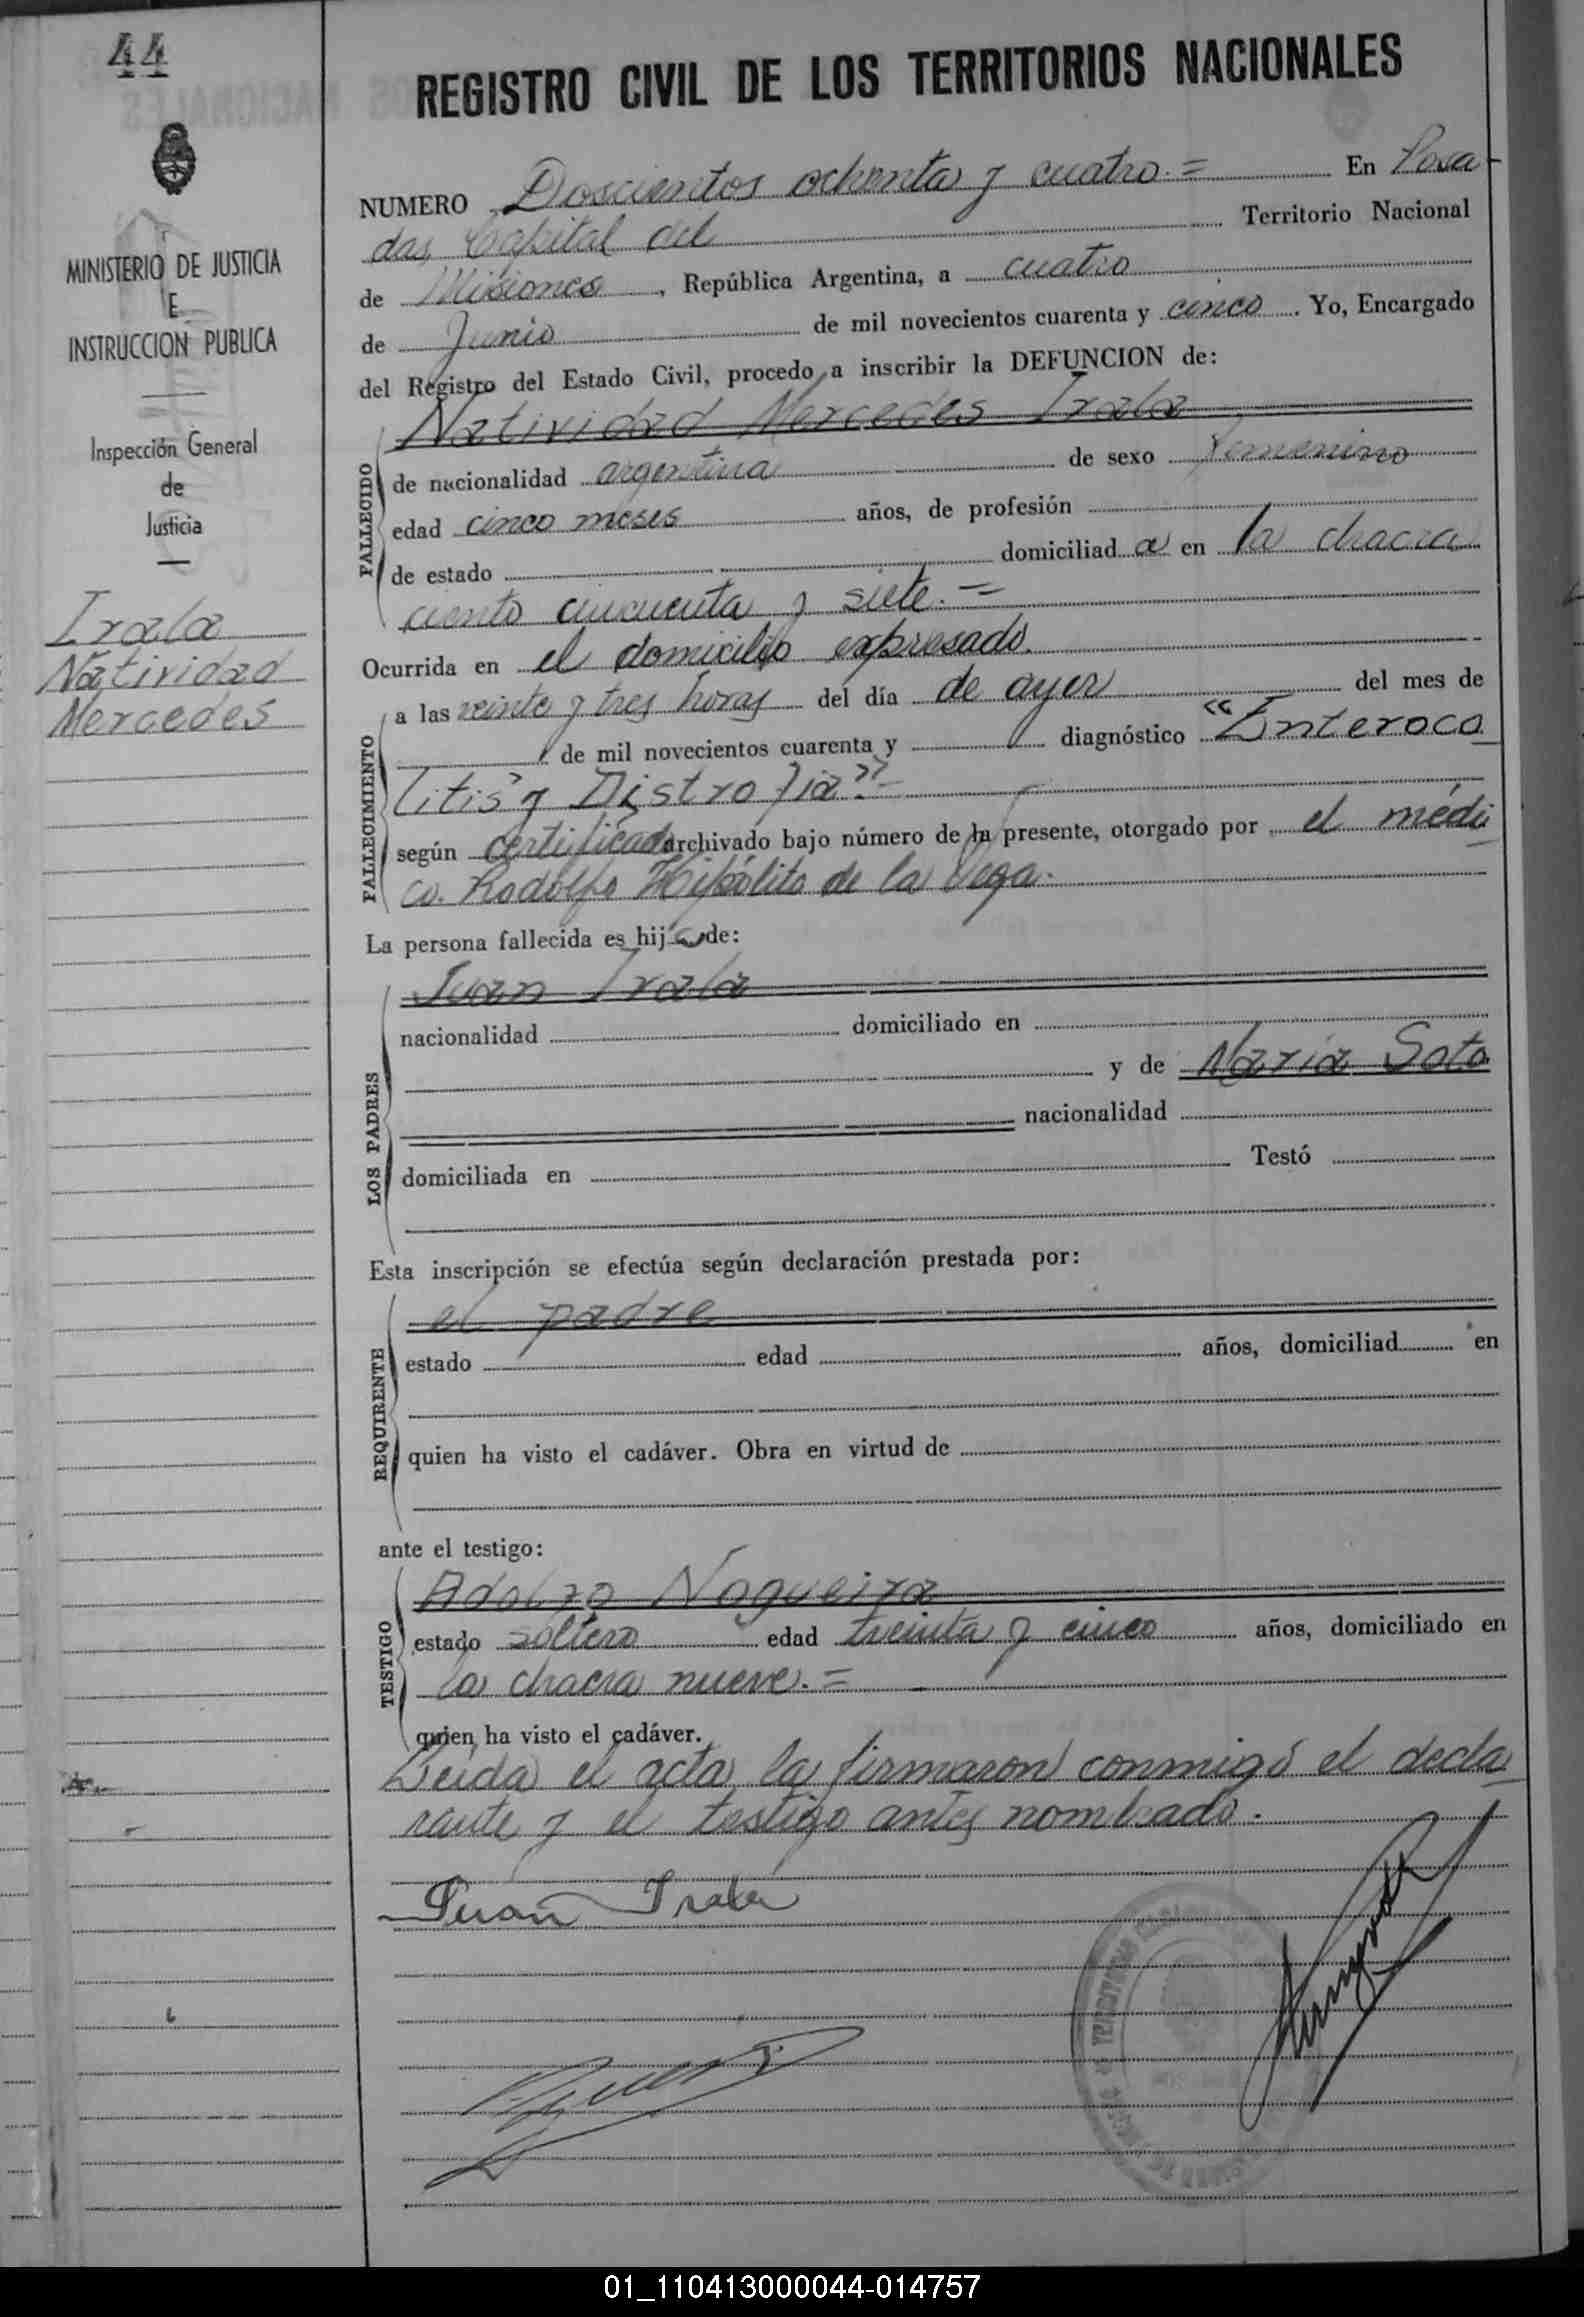 44
REGISTRO CIVIL DE LOS TERRITORIOS NACIONALES
MINISTERIO DE JUSTICIA
E
INSTRUCCION PUBLICA
Inspección General
de
Justicia
Irala
Natividad
Mercedes
NUMERO Doscientos ochenta y cuatro.= En Posa-
das, Capital del Territorio Nacional
de Misiones, República Argentina, a cuatro
de Junio de mil novecientos cuarenta y cinco. Yo, Encargado
del Registro del Estado Civil, procedo a inscribir la DEFUNCION de:
FALLECIDO
Natividad Mercedes Irala
de nacionalidad argentina de sexo femenino
edad cinco meses años, de profesión
de estado domiciliad a en la chacra
ciento cincuenta y siete.=
Ocurrida en el domicilio expresado.
FALLECIMIENTO
a las veinte y tres horas del día de ayer del mes de
de mil novecientos cuarenta y diagnóstico "Enteroco
litis y Distrofia"
según certificado archivado bajo número de la presente, otorgado por el médi
co. Rodolfo Hipólito de la Vega.
La persona fallecida es hija de:
LOS PADRES
Juan Irala
nacionalidad domiciliado en
y de María Soto
nacionalidad
domiciliada en Testó
Esta inscripción se efectúa según declaración prestada por:
REQUIRENTE
el padre
estado edad años, domiciliad en
quien ha visto el cadáver. Obra en virtud de
ante el testigo:
TESTIGO
Adolfo Nogueira
estado soltero edad treinta y cinco años, domiciliado en
la chacra nueve.=
quien ha visto el cadáver.
Leída el acta, la firmaron conmigo el decla
rante y el testigo antes nombrado.
Juan Irala
01_110413000044-014757